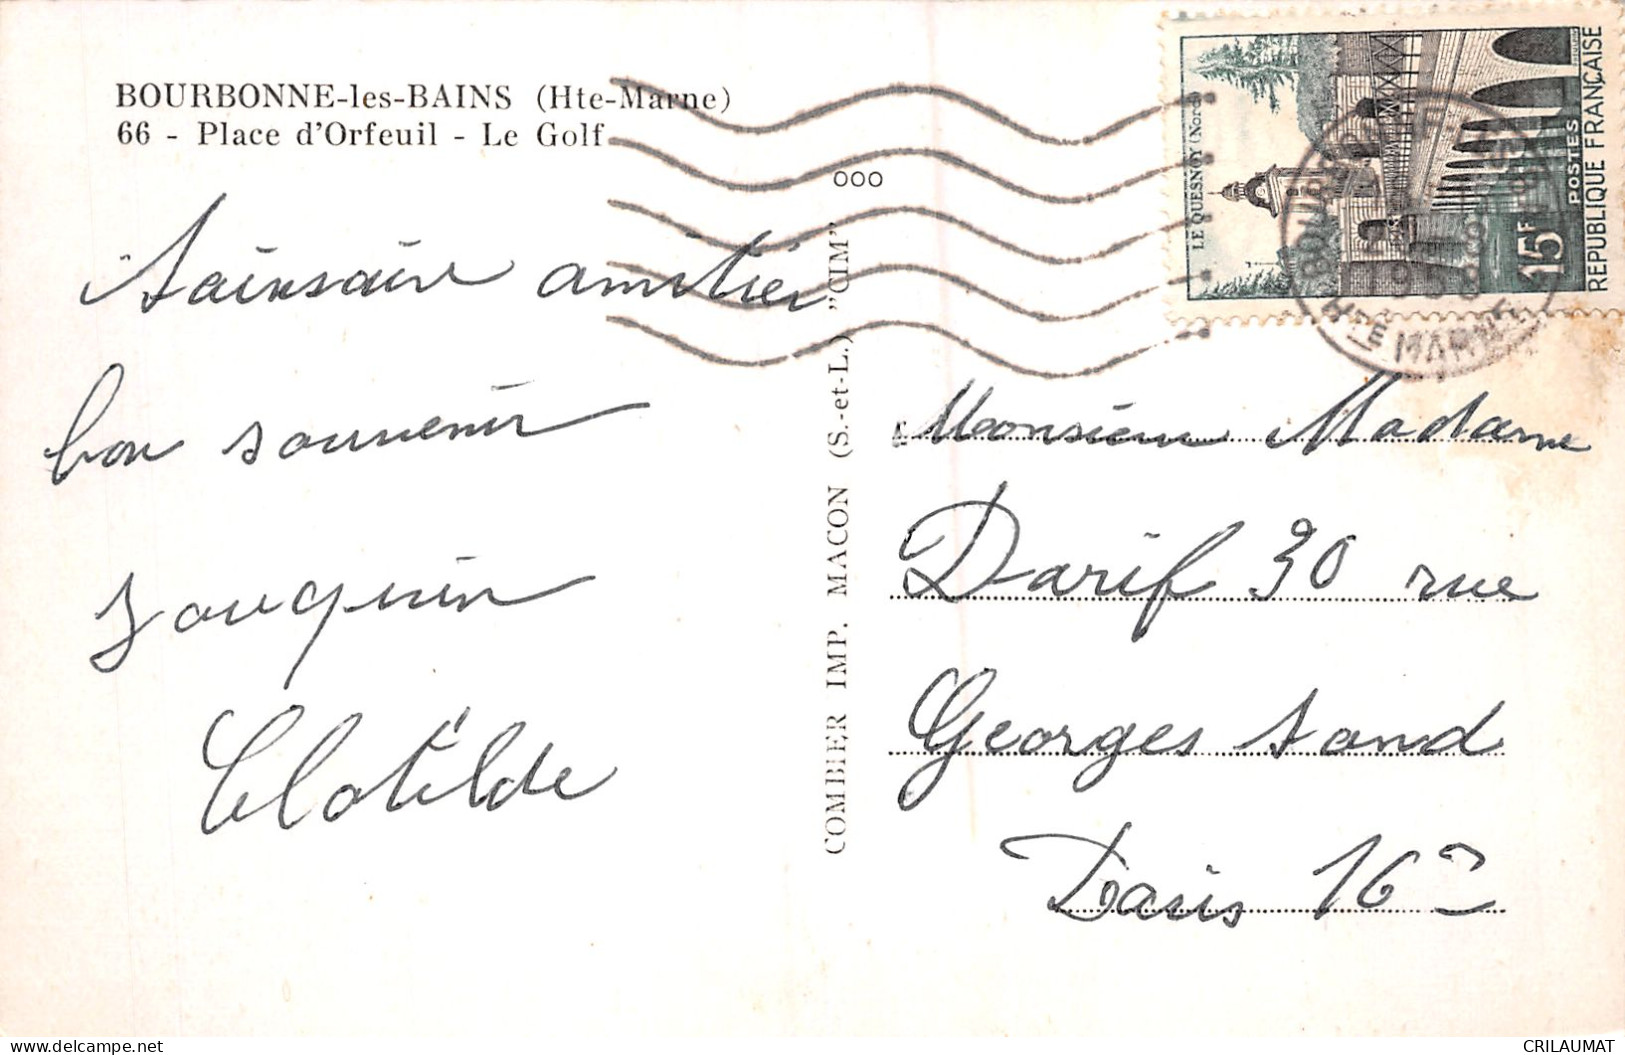 BOURBONNE-les-BAINS (Hte-Marne)
66 - Place d'Orfeuil - Le Golf
amitiés
bon souvenir
Clotilde
COMBIER IMP. MACON (S.-et-L.) "CIM"
000
LE QUESNOY (Nord)
15F
POSTES
REPUBLIQUE FRANÇAISE
HTE MARNE
Monsieur Madame
Darif 30 rue
Georges Sand
Paris 16
www.delcampe.net
CRILAUMAT